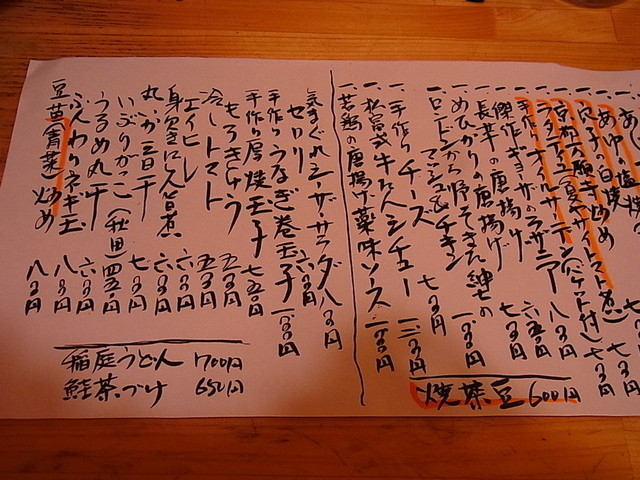 あゆの塩焼
穴子の白焼 七〇〇円
万願寺炒め 七〇〇円
ラタトゥイユ(夏ヤサイトマト煮)
手作りオイルサーディン(バゲット付) 七〇〇円
傑作ギョーザのラザニア 八〇〇円
長芋の唐揚げ 六五〇円
めひかりの唐揚げ 七〇〇円
ロンドンから帰ってきた紳士の
マッシュ&チキン 一、〇〇〇円
手作りチーズ 七〇〇円
松富式牛たんシチュー 一、二〇〇円
若鶏の唐揚げ薬味ソース 一、〇〇〇円
気まぐれシーザーサラダ 八〇〇円
セロリ 六〇〇円
手作りうなぎ巻玉子 一、〇〇〇円
手作り厚焼玉子 七五〇円
もろきゅう 五五〇円
冷しトマト 五五〇円
エイヒレ 六〇〇円
身欠にしん旨煮 六〇〇円
丸いか一日干 七〇〇円
いぶりがっこ(秋田) 四五〇円
うるめ丸干 六〇〇円
ふんわりネギ玉 八〇〇円
豆苗(青菜)炒め 八〇〇円
焼枝豆 600円
稲庭うどん 700円
鮭茶づけ 650円